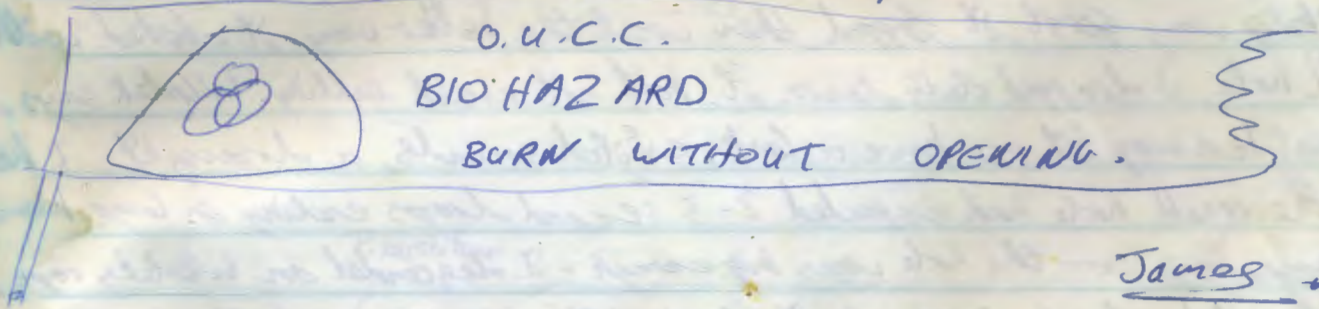 O.U.C.C.
BIOHAZARD
BURN WITHOUT OPENING.
James.